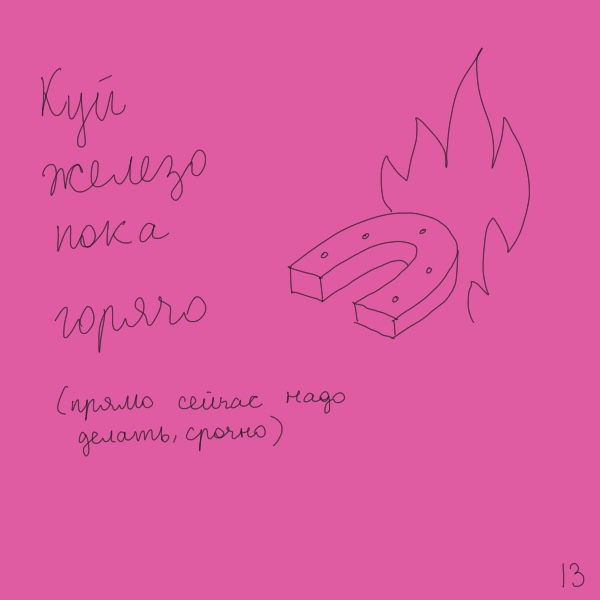 Куй
железо
пока
горячо
(прямо сейчас надо
делать, срочно)
13